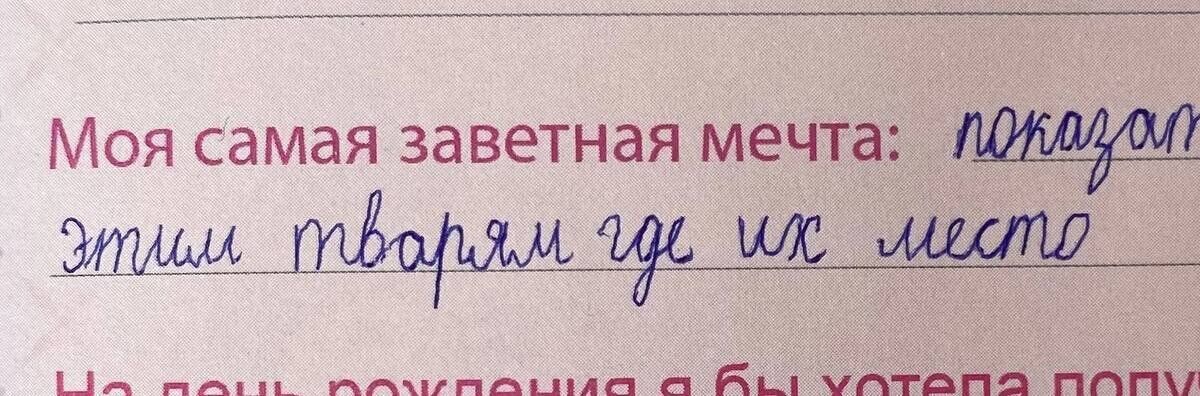 Моя самая заветная мечта: показат
этим тварям где их место
На день рождения я бы хотела полу